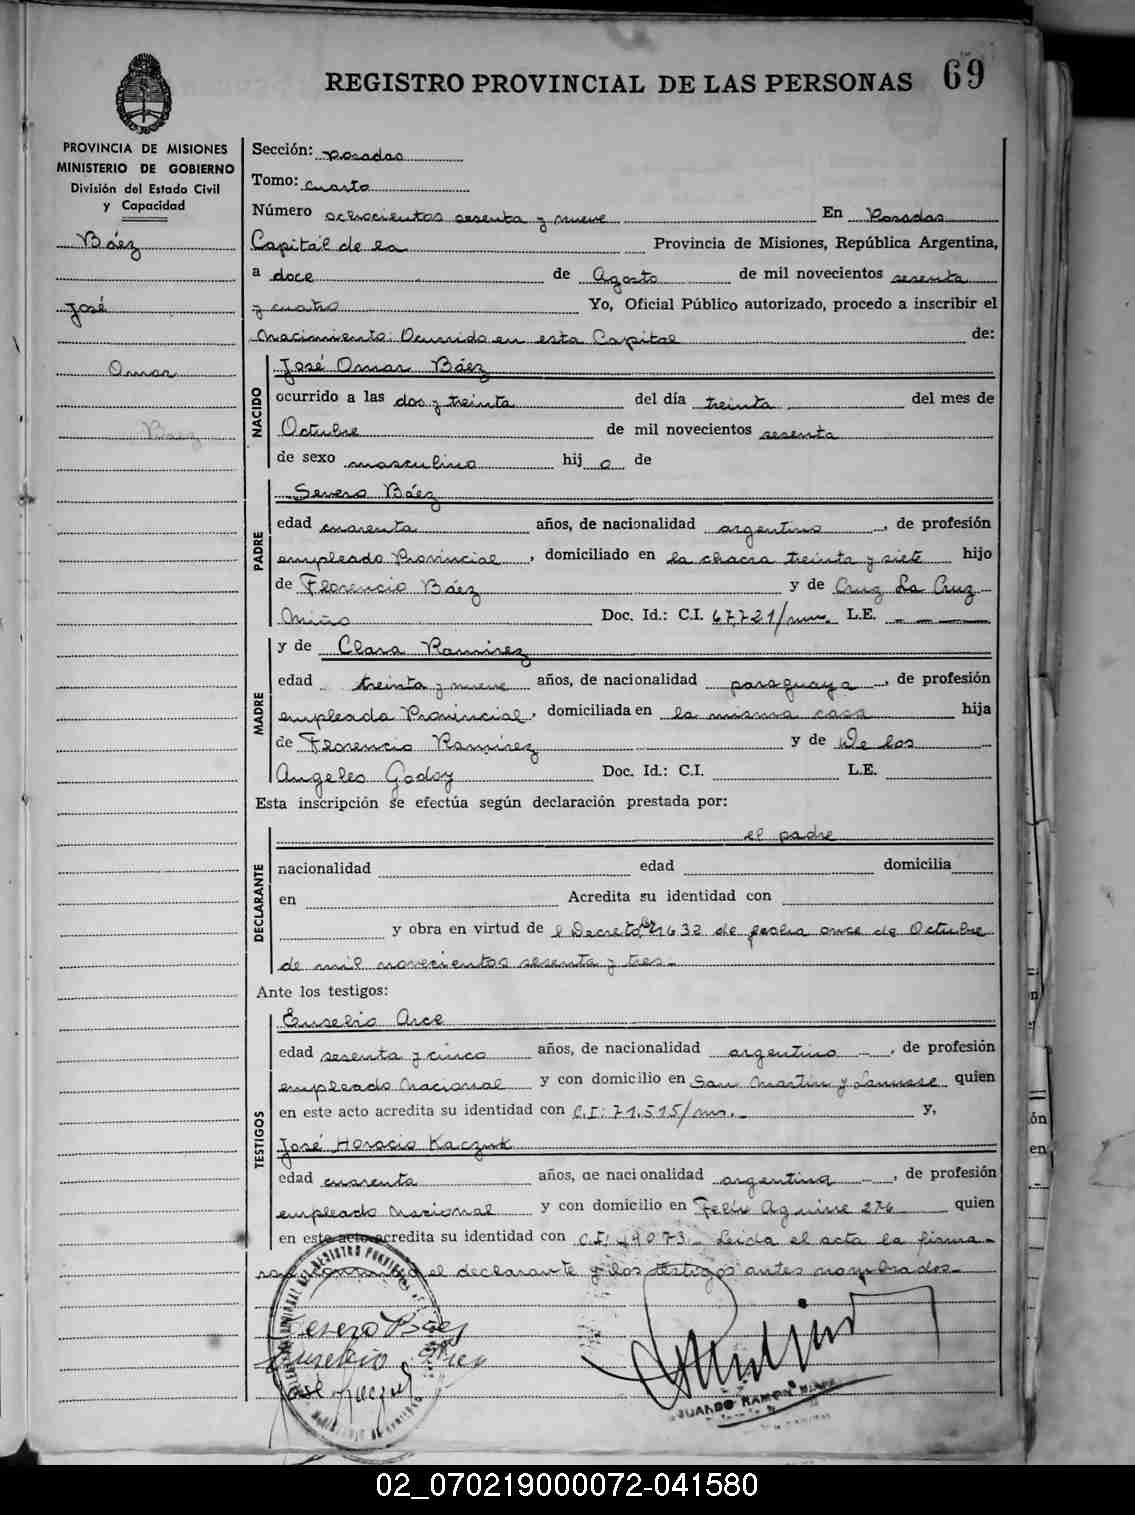 REGISTRO PROVINCIAL DE LAS PERSONAS 69
PROVINCIA DE MISIONES
MINISTERIO DE GOBIERNO
División del Estado Civil
y Capacidad
Báez
José
Omar
Baez
Sección: Posadas
Tomo: cuarto
Número ochocientos sesenta y nueve En Posadas
Capital de la Provincia de Misiones, República Argentina,
a doce de Agosto de mil novecientos sesenta
y cuatro Yo, Oficial Público autorizado, procedo a inscribir el
nacimiento: Ocurrido en esta Capital de:
NACIDO
José Omar Báez
ocurrido a las dos y treinta del día treinta del mes de
Octubre de mil novecientos sesenta
de sexo masculino hij o de
PADRE
Severo Báez
edad cuarenta años, de nacionalidad argentino, de profesión
empleado Provincial, domiciliado en la chacra treinta y siete hijo
de Florencio Báez y de Cruz La Cruz
Miño Doc. Id.: C.I. 67.721/mnes. L.E. - - -
MADRE
y de Clara Ramirez
edad treinta y nueve años, de nacionalidad paraguaya, de profesión
empleada Provincial, domiciliada en la misma casa hija
de Florencio Ramirez y de De los
Angeles Godoy Doc. Id.: C.I. L.E.
Esta inscripción se efectúa según declaración prestada por:
DECLARANTE
el padre
nacionalidad edad domicilia
en Acredita su identidad con
y obra en virtud de l Decreto 1632 de fecha once de Octubre
de mil novecientos sesenta y tres.-
Ante los testigos:
TESTIGOS
Eusebio Arce
edad sesenta y cinco años, de nacionalidad argentino -, de profesión
empleado Nacional y con domicilio en San Martin y Lanusse quien
en este acto acredita su identidad con C.I: 71.515/mns.- y,
José Horacio Kaczuk
edad cuarenta años, de nacionalidad argentina -, de profesión
empleado Nacional y con domicilio en Felix Aguirre 276 quien
en este acto acredita su identidad con C.I: 49073.- Leida el acta la firma-
el declarante y los testigos antes nombrados.-
Severo Báez
Eusebio Arce
José Kaczuk
02_070219000072-041580